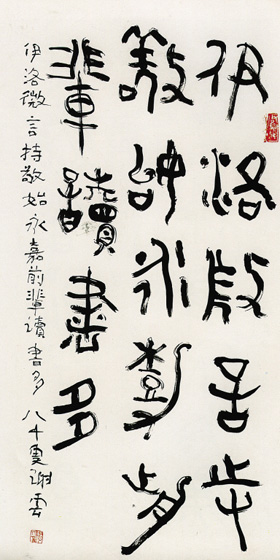 伊洛微言持
敬始永嘉前
輩讀書多
伊洛微言持敬始永嘉前輩讀書多 八十叟謝雲